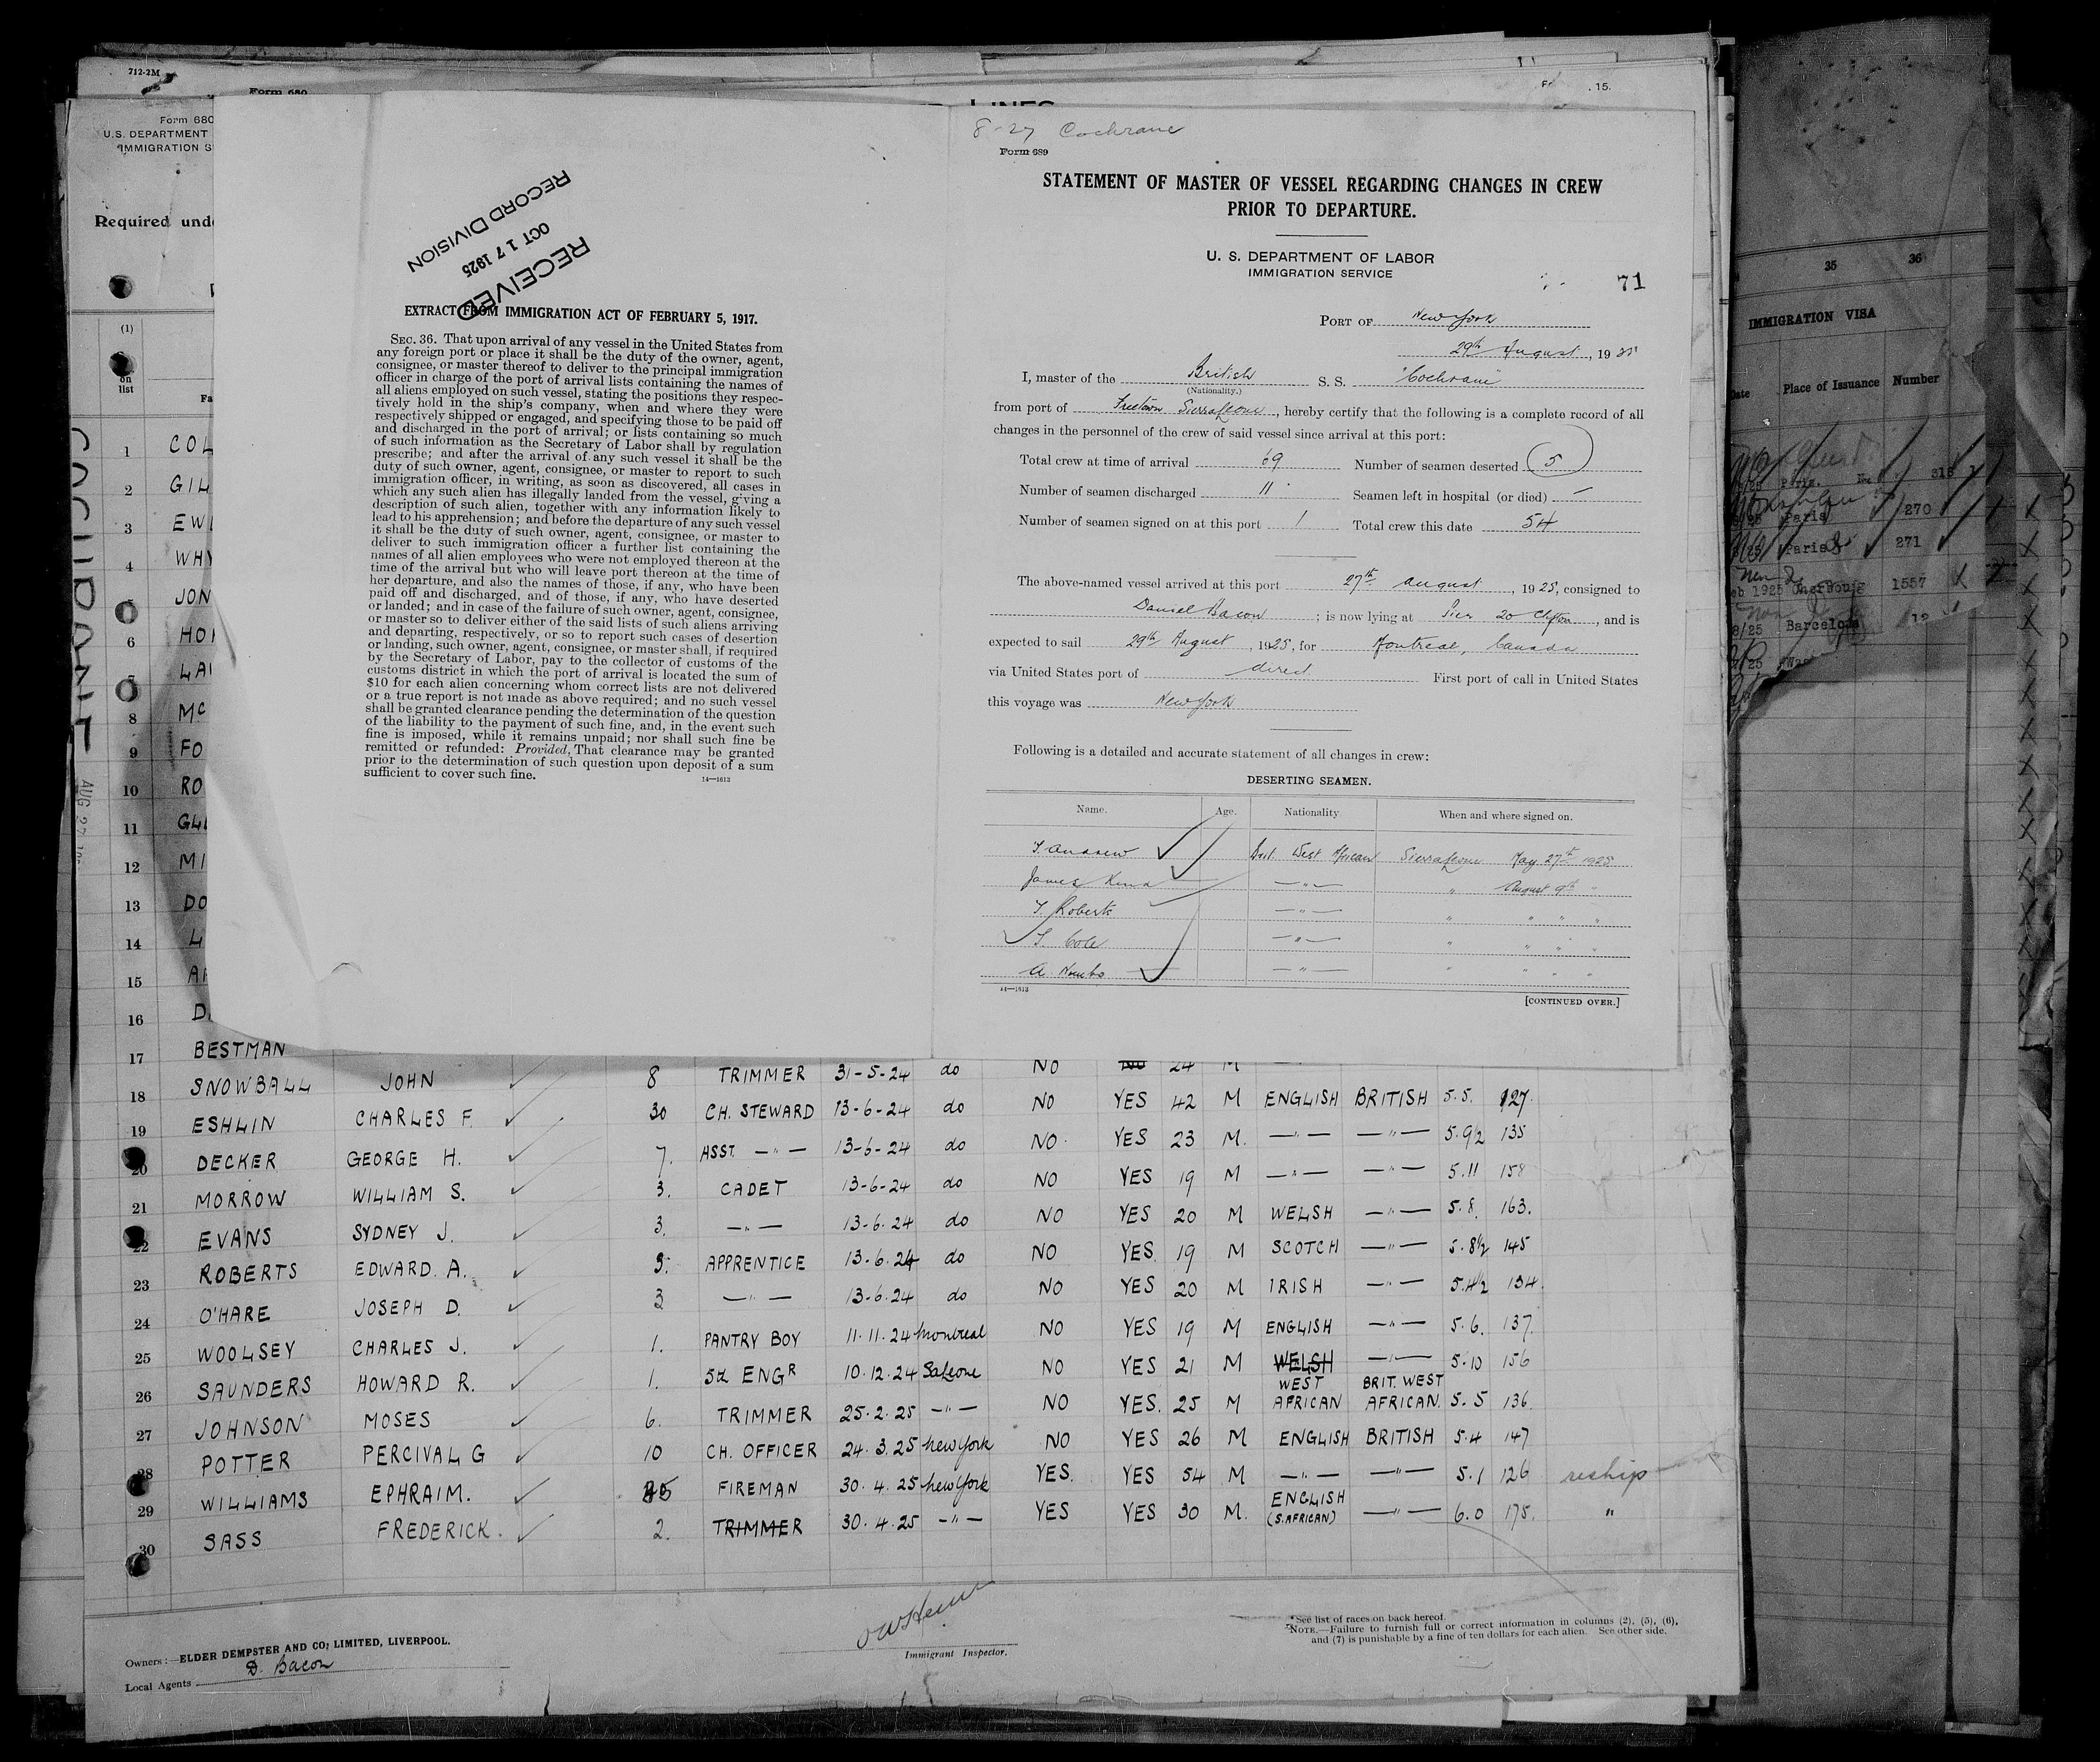 712-2M
Form 680
15.
LINES
Form 680
U.S. DEPARTMENT
IMMIGRATION S
Required unde
(1)
on
list
Fa
COCHRANE
AUG 27
1 COL
2 GIL
3 EWI
4 WHY
JON
6 HOP
LAV
8 Mc
9 FO
10 RO
11 GLE
12 MI
13 DO
14 L
15 AN
16 D
RECEIVED
OCT 17 1925
RECORD DIVISION
EXTRACT FROM IMMIGRATION ACT OF FEBRUARY 5, 1917.
SEC. 36. That upon arrival of any vessel in the United States from
any foreign port or place it shall be the duty of the owner, agent,
consignee, or master thereof to deliver to the principal immigration
officer in charge of the port of arrival lists containing the names of
all aliens employed on such vessel, stating the positions they respec-
tively hold in the ship's company, when and where they were
respectively shipped or engaged, and specifying those to be paid off
and discharged in the port of arrival; or lists containing so much
of such information as the Secretary of Labor shall by regulation
prescribe; and after the arrival of any such vessel it shall be the
duty of such owner, agent, consignee, or master to report to such
immigration officer, in writing, as soon as discovered, all cases in
which any such alien has illegally landed from the vessel, giving a
description of such alien, together with any information likely to
lead to his apprehension; and before the departure of any such vessel
it shall be the duty of such owner, agent, consignee, or master to
deliver to such immigration officer a further list containing the
names of all alien employees who were not employed thereon at the
time of the arrival but who will leave port thereon at the time of
her departure, and also the names of those, if any, who have been
paid off and discharged, and of those, if any, who have deserted
or landed; and in case of the failure of such owner, agent, consignee,
or master so to deliver either of the said lists of such aliens arriving
and departing, respectively, or so to report such cases of desertion
or landing, such owner, agent, consignee, or master shall, if required
by the Secretary of Labor, pay to the collector of customs of the
customs district in which the port of arrival is located the sum of
$10 for each alien concerning whom correct lists are not delivered
or a true report is not made as above required; and no such vessel
shall be granted clearance pending the determination of the question
of the liability to the payment of such fine, and, in the event such
fine is imposed, while it remains unpaid; nor shall such fine be
remitted or refunded: Provided, That clearance may be granted
prior to the determination of such question upon deposit of a sum
sufficient to cover such fine.
14—1613
8-27 Cochrane
Form 689
STATEMENT OF MASTER OF VESSEL REGARDING CHANGES IN CREW
PRIOR TO DEPARTURE.
U. S. DEPARTMENT OF LABOR
IMMIGRATION SERVICE
71
PORT OF New York
29th August, 1925
I, master of the British S. S. "Cochrane"
(Nationality.)
from port of Freetown Sierra Leone, hereby certify that the following is a complete record of all
changes in the personnel of the crew of said vessel since arrival at this port:
Total crew at time of arrival 69 Number of seamen deserted 5
Number of seamen discharged 11 Seamen left in hospital (or died) —
Number of seamen signed on at this port 1 Total crew this date 54
The above-named vessel arrived at this port 27th August, 1925, consigned to
Daniel Bacon; is now lying at Pier 20 Clifton, and is
expected to sail 29th August, 1925, for Montreal, Canada
via United States port of direct. First port of call in United States
this voyage was New York
Following is a detailed and accurate statement of all changes in crew:
DESERTING SEAMEN.
Name. Age. Nationality When and where signed on.
Andrew Brit. West African Sierra Leone May 27th 1925
James —"— " August 9th "
Roberts —"— " " " "
Cole —"— " " " "
A. —"— " " " "
14—1613
[CONTINUED OVER.]
17 BESTMAN
18 SNOWBALL JOHN 8 TRIMMER 31-5-24 do NO NO 24 M
19 ESHLIN CHARLES F. 30 CH. STEWARD 13-6-24 do NO YES 42 M ENGLISH BRITISH 5.5. 127.
20 DECKER GEORGE H. 7. ASST. —"— 13-6-24 do NO. YES 23 M. —"— —"— 5.9½ 135
21 MORROW WILLIAM S. 3. CADET 13-6-24 do NO YES 19 M —"— —"— 5.11 158
22 EVANS SYDNEY J. 3. —"— 13-6-24 do NO YES 20 M WELSH —"— 5.8. 163.
23 ROBERTS EDWARD. A. 3. APPRENTICE 13-6-24 do NO YES. 19 M SCOTCH —"— 5.8½ 145
24 O'HARE JOSEPH D. 3 —"— 13-6-24 do NO YES 20 M IRISH —"— 5.4½ 134.
25 WOOLSEY CHARLES J. 1. PANTRY BOY 11.11.24 Montreal NO YES 19 M ENGLISH —"— 5.6. 137.
26 SAUNDERS HOWARD R. 1. 5th ENGR 10.12.24 SaLeone NO YES 21 M WELSH —"— 5.10 156
27 JOHNSON MOSES 6. TRIMMER 25.2.25 —"— NO YES. 25 M WEST AFRICAN BRIT. WEST AFRICAN. 5.5 136
28 POTTER PERCIVAL G 10 CH. OFFICER 24.3.25 New York NO YES 26 M ENGLISH BRITISH 5.4 147
29 WILLIAMS EPHRAIM. FIREMAN 30.4.25 New York YES. YES 54 M —"— —"— 5.1 126 reship
30 SASS FREDERICK. 2. TRIMMER 30.4.25 —"— YES YES 30 M. ENGLISH (S.AFRICAN) —"— 6.0 175. "
Owners:—ELDER DEMPSTER AND CO; LIMITED, LIVERPOOL.
Local Agents D. Bacon
Immigrant Inspector.
*See list of races on back hereof.
NOTE.—Failure to furnish full or correct information in columns (2), (5), (6),
and (7) is punishable by a fine of ten dollars for each alien. See other side.
35 36
IMMIGRATION VISA
Date Place of Issuance Number
/25 Paris. 318
/25 Paris 270
Paris 271
eb 1925 Cherbourg 1557
8/25 Barcelona 12
/25 War